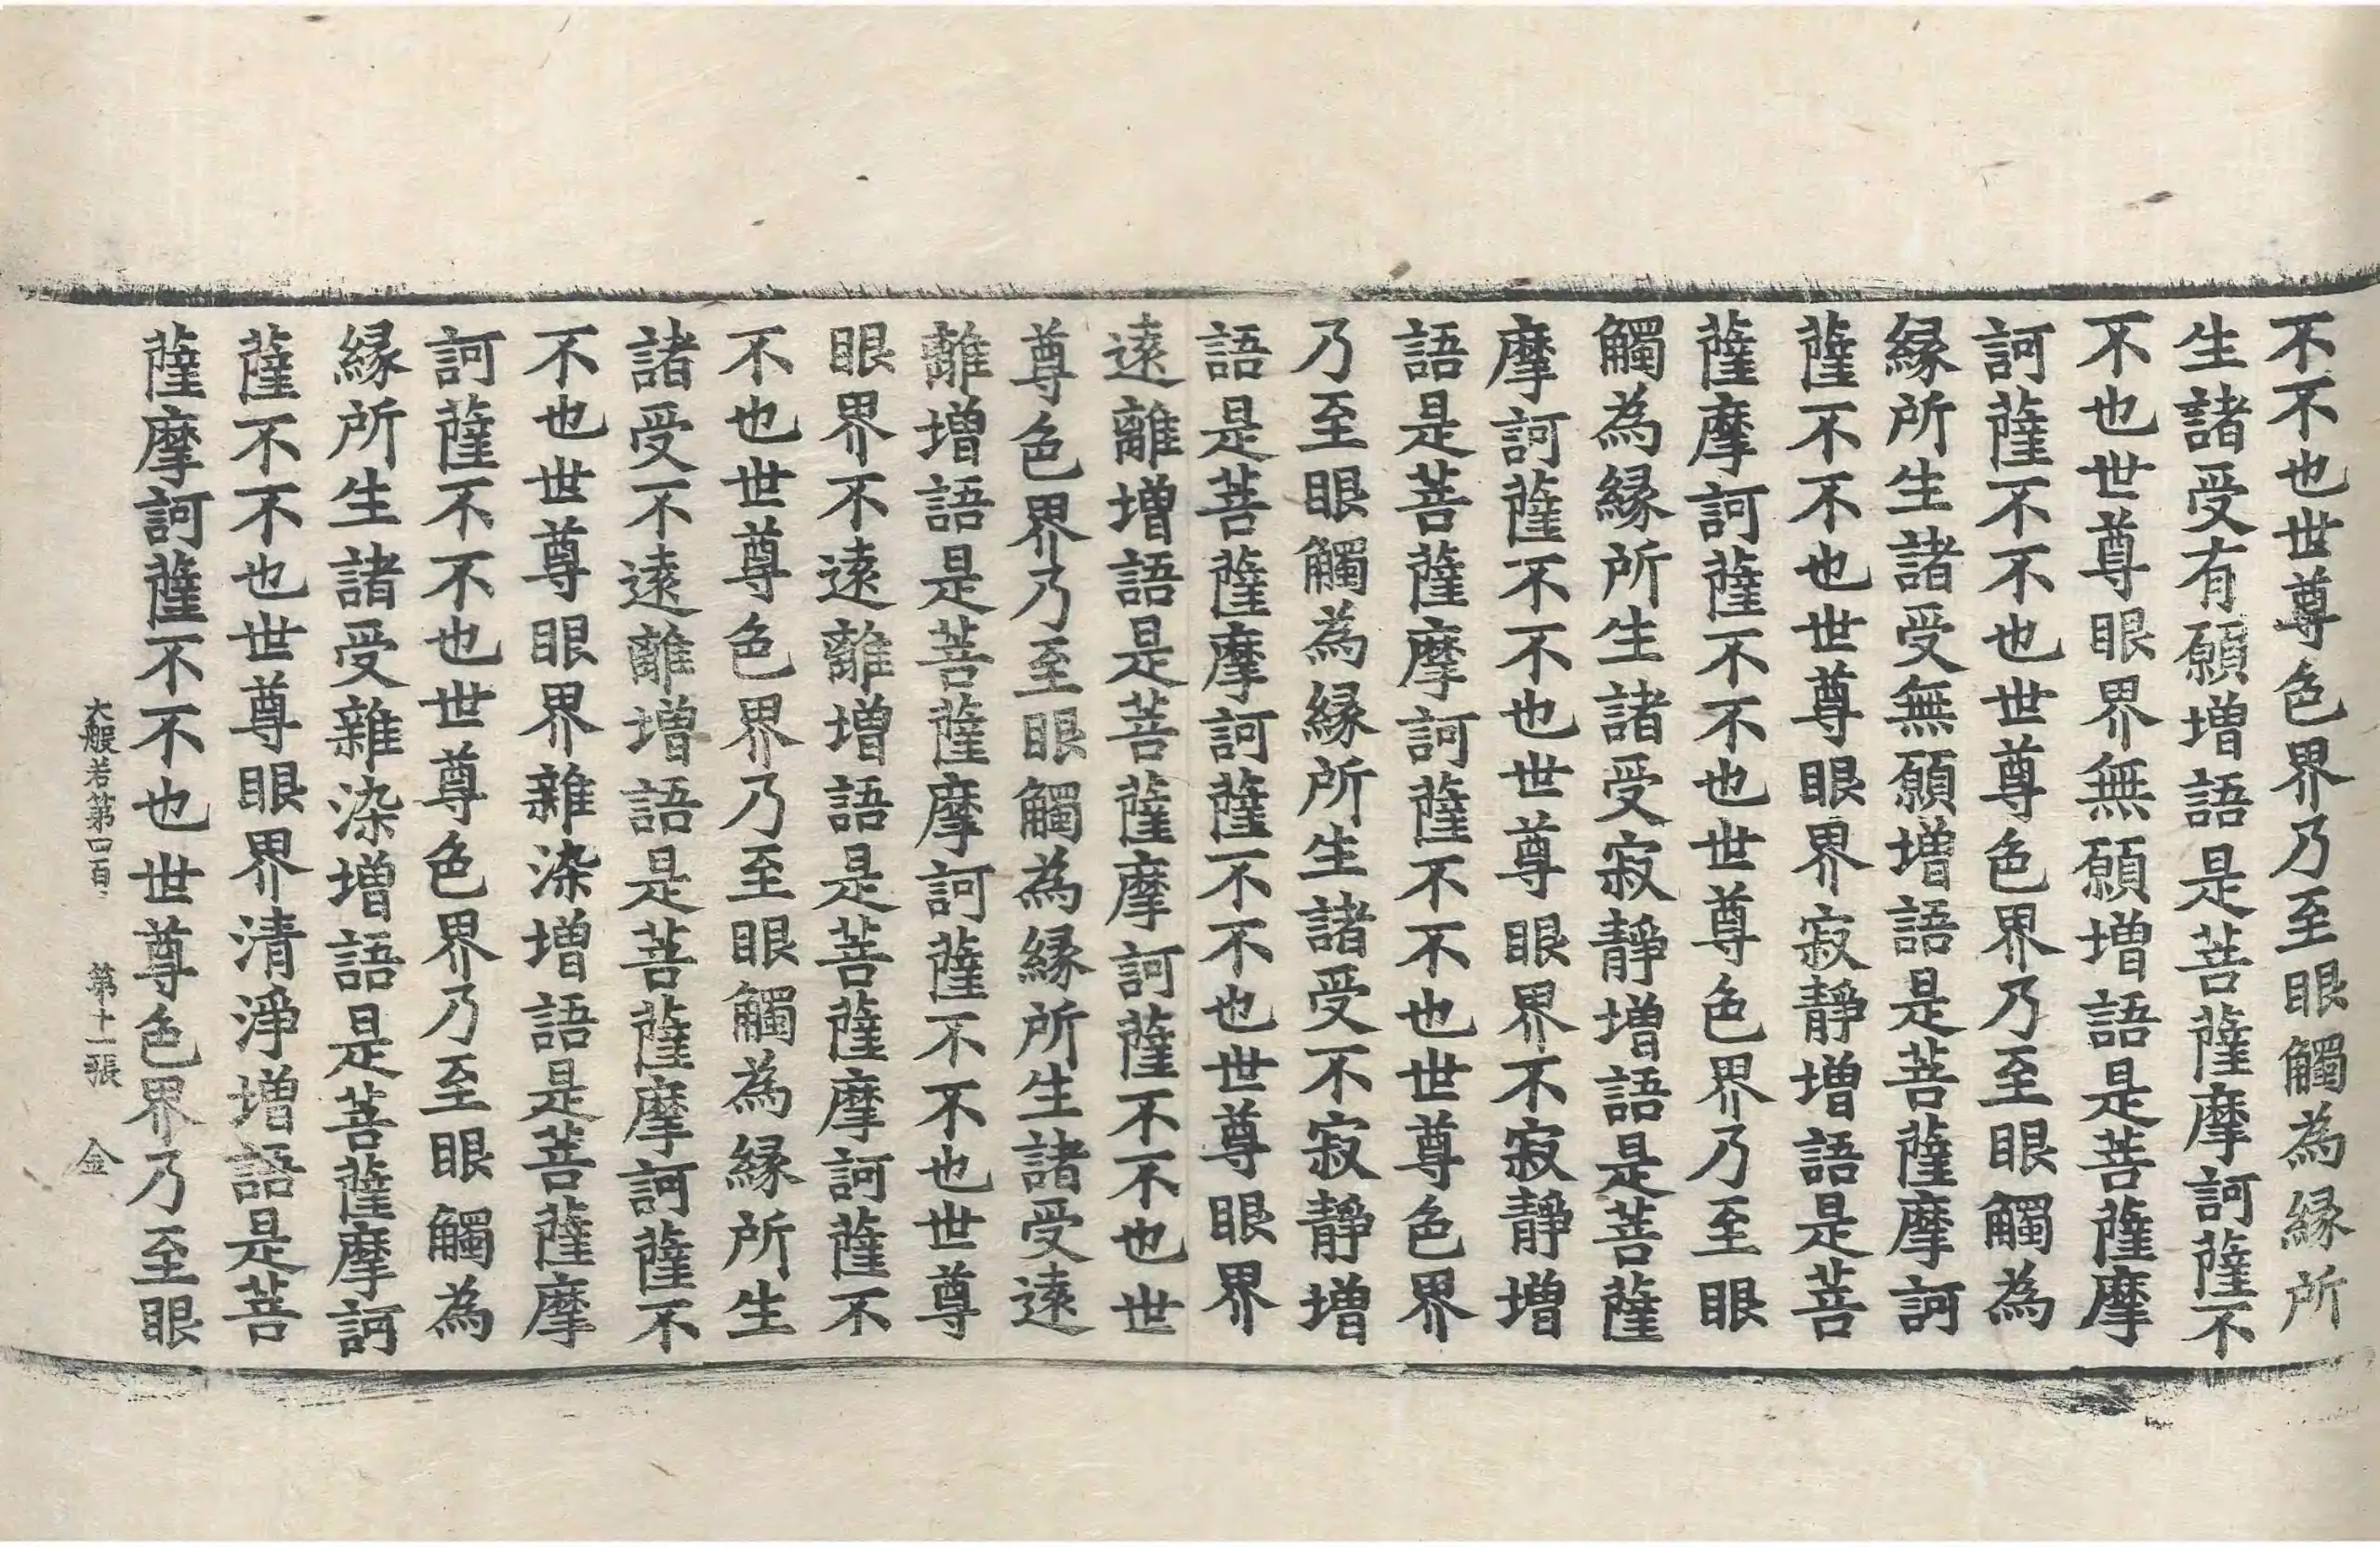 不不也世尊色界乃至眼觸為緣所
生諸受有願增語是菩薩摩訶薩不
不也世尊眼界無願增語是菩薩摩
訶薩不不也世尊色界乃至眼觸為
緣所生諸受無願增語是菩薩摩訶
薩不不也世尊眼界寂靜增語是菩
薩摩訶薩不不也世尊色界乃至眼
觸為緣所生諸受寂靜增語是菩薩
摩訶薩不不也世尊眼界不寂靜增
語是菩薩摩訶薩不不也世尊色界
乃至眼觸為緣所生諸受不寂靜增
語是菩薩摩訶薩不不也世尊眼界
遠離增語是菩薩摩訶薩不不也世
尊色界乃至眼觸為緣所生諸受遠
離增語是菩薩摩訶薩不不也世尊
眼界不遠離增語是菩薩摩訶薩不
不也世尊色界乃至眼觸為緣所生
諸受不遠離增語是菩薩摩訶薩不
不也世尊眼界雜染增語是菩薩摩
訶薩不不也世尊色界乃至眼觸為
緣所生諸受雜染增語是菩薩摩訶
薩不不也世尊眼界清淨增語是菩
薩摩訶薩不不也世尊色界乃至眼
大般若第四百 第十一張 金